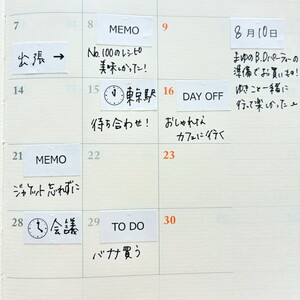 7
8
MEMO
No.100のレシピ
美味しかった!
9
8月10日
まゆのB.Dパーティーの
準備でお買いもの!
ゆきこと一緒に
行って楽しかった
出張 →
14
15
東京駅
待ち合わせ!
16
DAY OFF
おしゃれな
カフェに行く
21
MEMO
ジャケット忘れずに
22
23
28
会議
29
TO DO
バナナ買う
30